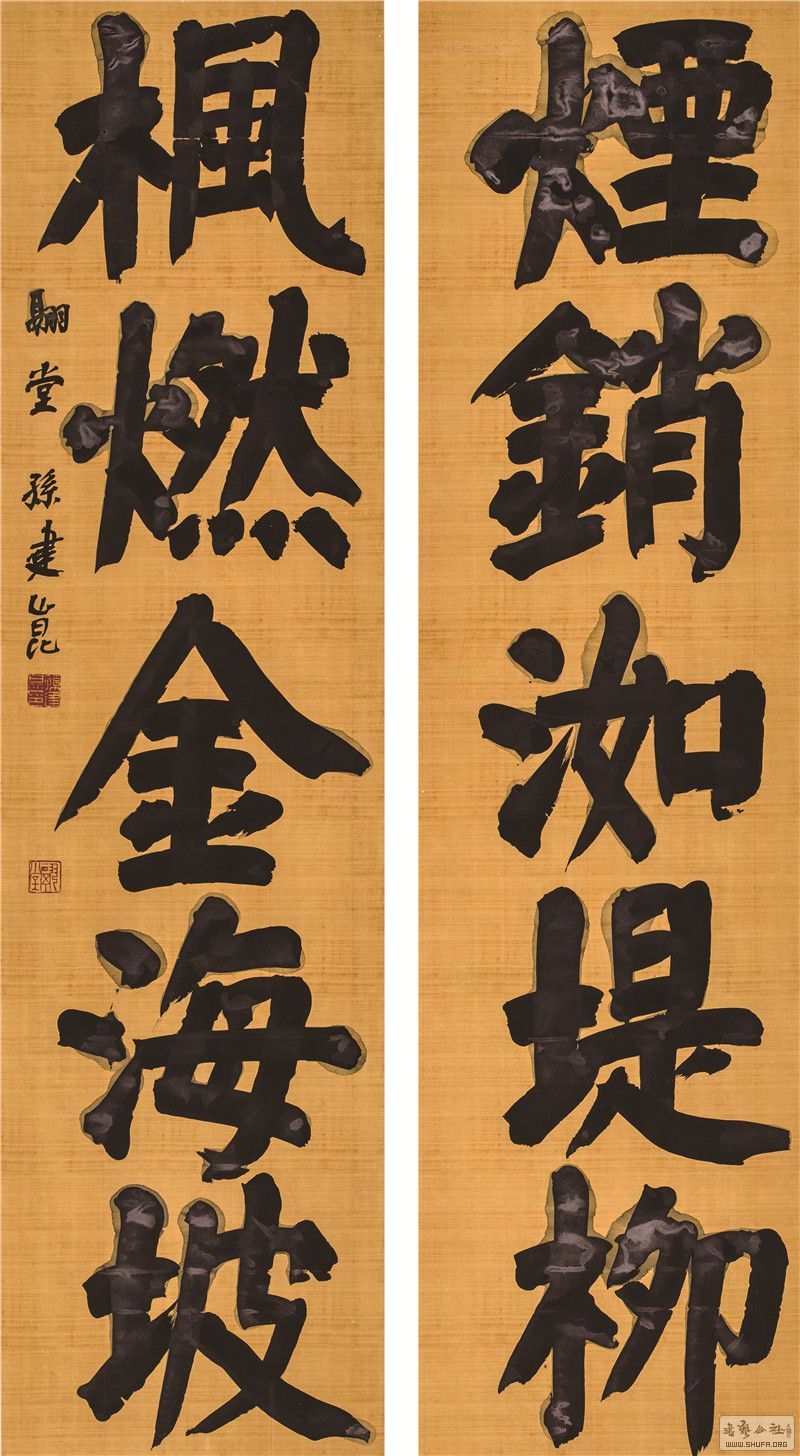 煙銷洳堤柳
楓燃金海坡
堂 孫建崑
书艺公社
WWW.SHUFA.ORG